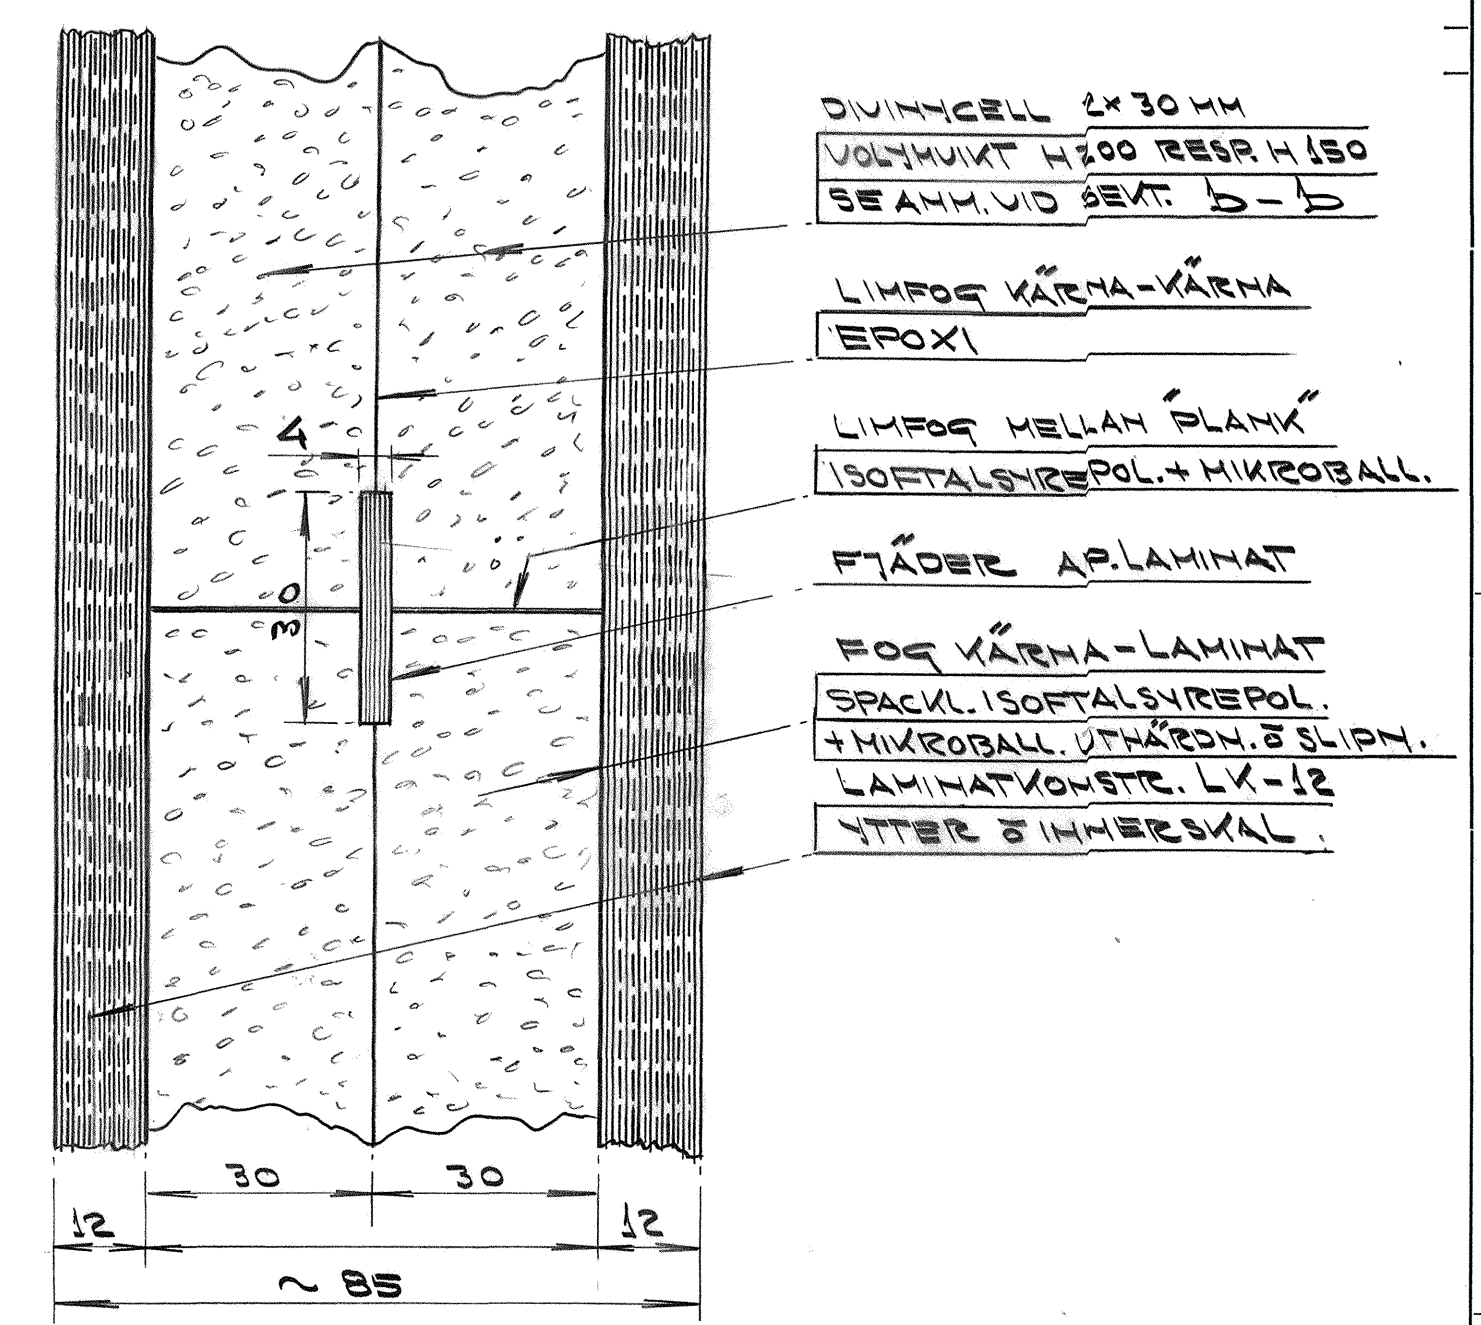 DIVINYCELL 2x30 MM
VOLYMVIKT H200 RESP. H 150
SE ANM. VID SEKT. b - b
LIMFOG KÄRNA-KÄRNA
EPOXI
LIMFOG MELLAN "PLANK"
ISOFTALSYREPOL. + MIKROBALL.
4
FJÄDER AP. LAMINAT
30
FOG KÄRNA-LAMINAT
SPACKL. ISOFTALSYREPOL.
+ MIKROBALL. UTHÄRDN. Ō SLIPN.
LAMINATKONSTR. LK-12
YTTER Ō INNERSKAL.
30 30
12 12
~ 85